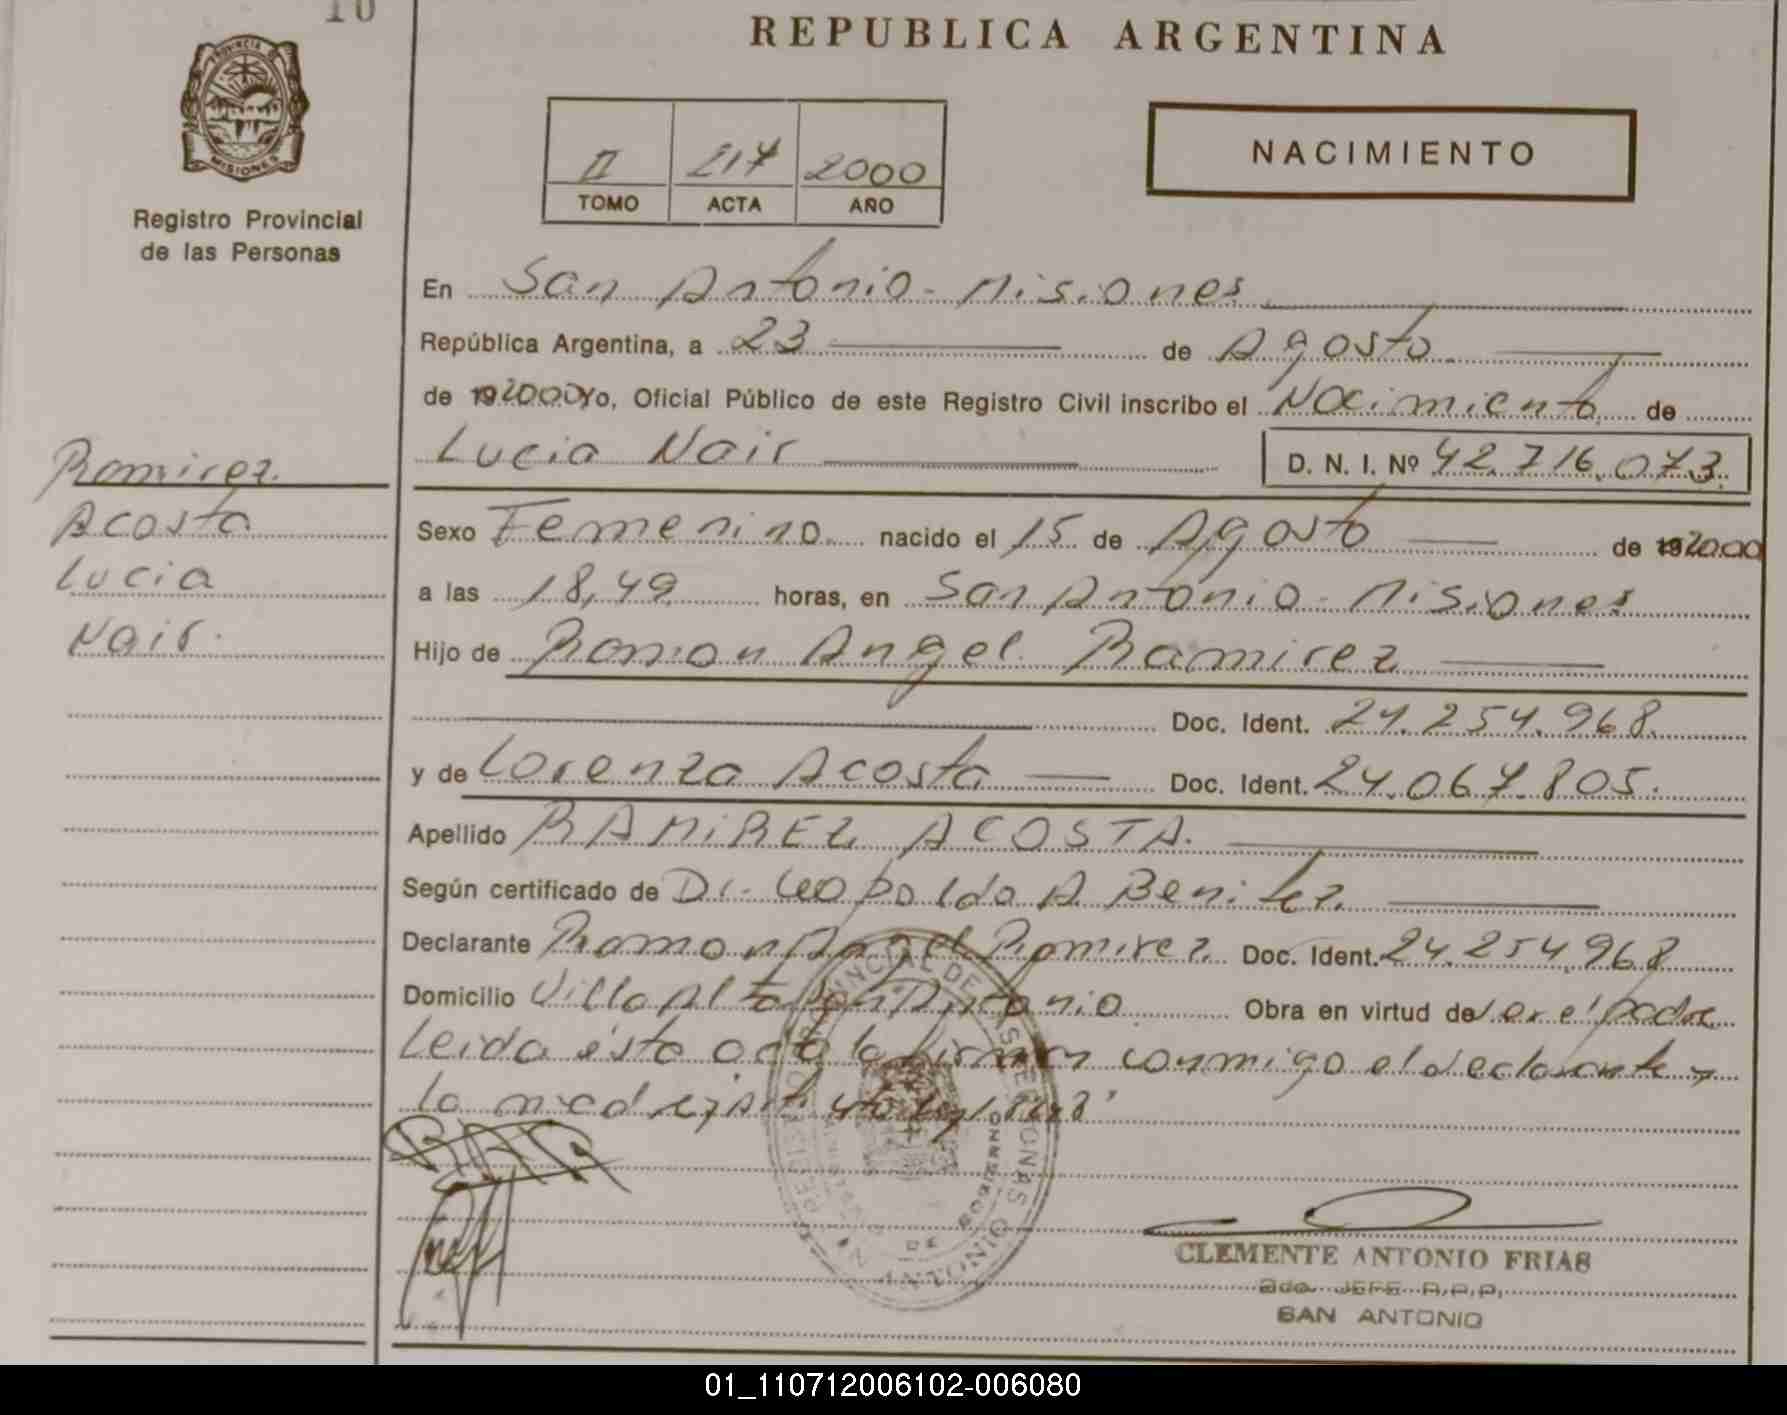 10
REPUBLICA ARGENTINA
PROVINCIA DE
MISIONES
Registro Provincial
de las Personas
II 217 2000
TOMO ACTA AÑO
NACIMIENTO
En San Antonio - Misiones
República Argentina, a 23 de Agosto
de 192000 Yo, Oficial Público de este Registro Civil inscribo el Nacimiento de
Lucia Nair D. N. I. Nº 42.716.073.
Ramirez
Acosta
Lucia
Nair.
Sexo Femenino nacido el 15 de Agosto de 192000
a las 18,49 horas, en San Antonio - Misiones
Hijo de Ramon Angel Ramirez
Doc. Ident. 24.254.968.
y de Lorenza Acosta Doc. Ident. 24.067.805.
Apellido RAMIREZ ACOSTA.
Según certificado de Dr. Leopoldo A Benitez.
Declarante Ramon Angel Ramirez Doc. Ident. 24.254.968
Domicilio Villa Alta San Antonio Obra en virtud de ser el padre
Leida ésta acta la firman conmigo el declarante y
la madre
CLEMENTE ANTONIO FRIAS
JEFE R.P.P.
SAN ANTONIO
01_110712006102-006080